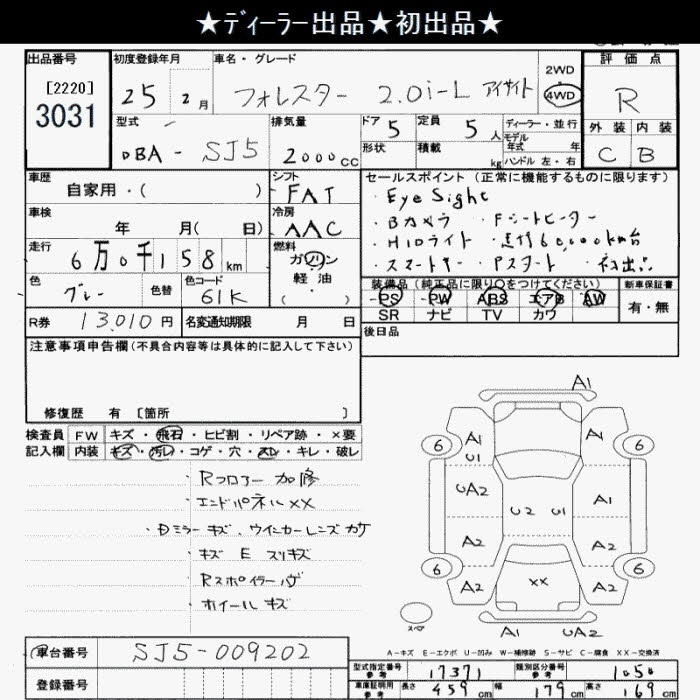 ★ディーラー出品★初出品★
出品番号
[2220]
3031
初度登録年月
25 2月
車名・グレード
フォレスター 2.0i-L アイサイト
2WD
4WD
評価点
R
外装 内装
C B
型式
DBA - SJ5
排気量
2000cc
ドア 5
形状
定員 5人
積載 kg
ディーラー・並行
モデル
年式 年
ハンドル 左・右
車歴
自家用・( )
シフト
FAT
車検
年 月( 日)
冷房
AAC
走行
6万0千158km
燃料
ガソリン
軽油
( )
色
グレー
色替
色コード
61K
R券 13,010円
名変通知期限 月 日
セールスポイント(正常に機能するものに限ります)
・Eye Sight
・Bカメラ ・Fシートヒーター
・HIDライト ・走行60,000km台
・スマートキー ・Pスタート ・初出品
装備品(純正品に限り○をつけてください)
PS PW ABS エアB AW
SR ナビ TV カワ
新車保証書
有・無
後日品
注意事項申告欄(不具合内容等は具体的に記入して下さい)
修復歴 有 [箇所 ]
検査員
記入欄
FW キズ・飛石・ヒビ割・リペア跡・×要
内装 キズ・汚レ・コゲ・穴・スレ・キレ・破レ
・Rフロアー加修
・エンドパネルXX
・Dミラーキズ、ウインカーレンズカケ
・キズ E スリキズ
・Rスポイラーハゲ
・ホイールキズ
A1
6 A1 U1 A2 6
UA2 A1
U2 U1
A2 A2
6 A2 XX A2 6
スペア
A1 UA2
A-キズ E-エクボ U-凹み W-補修跡 S-サビ C-腐食 XX-交換済
車台番号 SJ5-009202
登録番号
型式指定番号
参考
17371
類別区分番号
参考
1050
車庫証明用
参考
長さ 459cm 幅 179cm 高さ 169cm